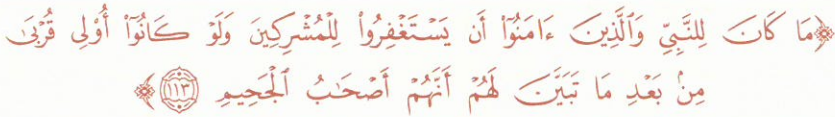 ﴿مَا كَانَ لِلنَّبِيِّ وَٱلَّذِينَ ءَامَنُوٓا۟ أَن يَسْتَغْفِرُوا۟ لِلْمُشْرِكِينَ وَلَوْ كَانُوٓا۟ أُو۟لِى قُرْبَىٰ
مِنۢ بَعْدِ مَا تَبَيَّنَ لَهُمْ أَنَّهُمْ أَصْحَـٰبُ ٱلْجَحِيمِ ١١٣﴾